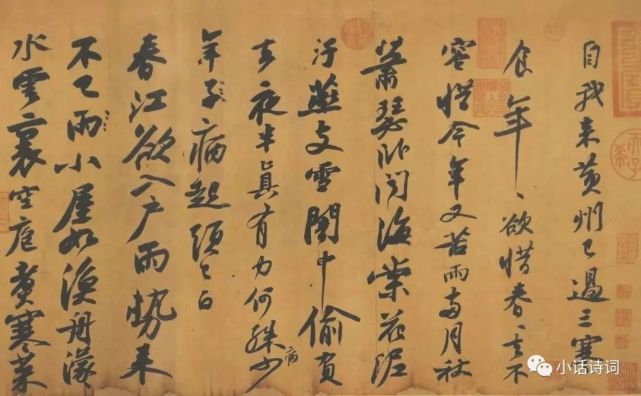 自我来黄州已過三寒
食年〻欲惜春〻去不
容惜今年又苦雨兩月秋
蕭瑟卧聞海棠花泥
汙燕支雪闇中偷負
去夜半真有力何殊少
病
年子病起頭已白
春江欲入户雨勢来
不已雨小屋如漁舟濛〻
水雲裏空庖煮寒菜
小话诗词